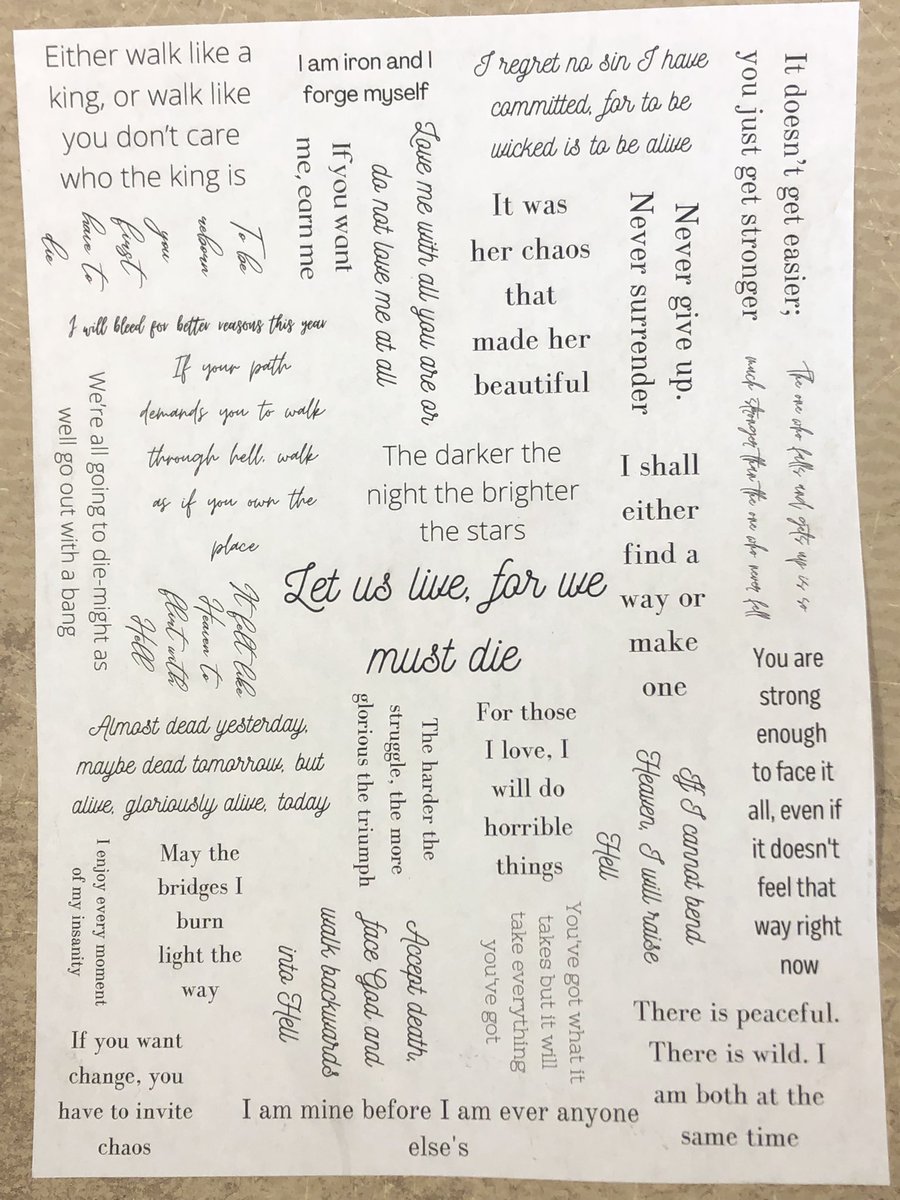 Either walk like a
king, or walk like
you don't care
who the king is
I am iron and I
forge myself
I regret no sin I have
committed, for to be
wicked is to be alive
It doesn't get easier;
you just get stronger
To be
reborn
you
first
have to
die
If you want
me, earn me
Love me with all you are or
do not love me at all
It was
her chaos
that
made her
beautiful
Never give up.
Never surrender
I will bleed for better reasons this year
If your path
demands you to walk
through hell, walk
as if you own the
place
The one who falls and gets up is so
much stronger than the one who never fell
We're all going to die-might as
well go out with a bang
The darker the
night the brighter
the stars
I shall
either
find a
way or
make
one
Let us live, for we
must die
It felt like
Heaven to
flirt with
Hell
You are
strong
enough
to face it
all, even if
it doesn't
feel that
way right
now
Almost dead yesterday,
maybe dead tomorrow, but
alive, gloriously alive, today
The harder the
struggle, the more
glorious the triumph
For those
I love, I
will do
horrible
things
If I cannot bend
Heaven, I will raise
Hell
I enjoy every moment
of my insanity
May the
bridges I
burn
light the
way
Accept death,
face God and
walk backwards
into Hell
You've got what it
takes but it will
take everything
you've got
There is peaceful.
There is wild. I
am both at the
same time
If you want
change, you
have to invite
chaos
I am mine before I am ever anyone
else's